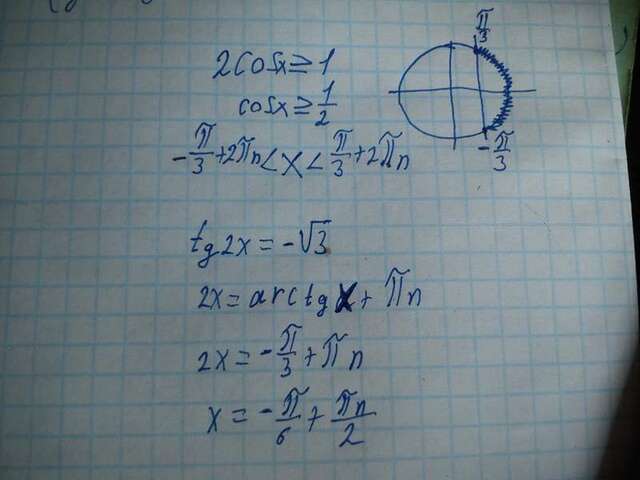 2cosx≥1
cosx≥1/2
-π/3+2πn<x<π/3+2πn
π/3
-π/3
tg2x=-√3
2x=arctgx+πn
2x=-π/3+πn
x=-π/6+πn/2